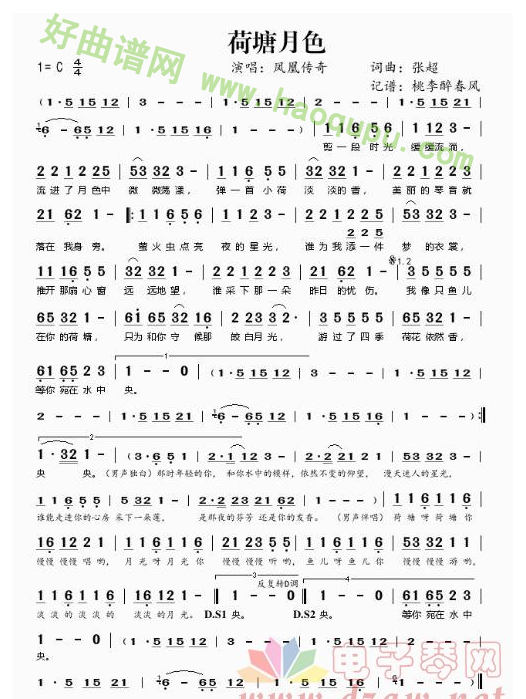 荷塘月色
1=C 4/4 演唱：凤凰传奇 词曲：张超
记谱：桃李醉春风
好曲谱网
www.haoqupu.com
(1·5 15 12 | 3 - - - | 1·5 15 12 | 2 - - - | 1·5 15 21
6 - 65 12 | 1·5 15 16 | 1 - - -) | 11 6 5 6 | 53 32 3 -
剪一段 时光 缓缓流淌，
221 225 | 32 32 1 - | 221 223 | 53 323 - | 221 225
流进了月色中 微 微荡漾， 弹一首小荷 淡 淡的香， 美丽的琴音就
21 62 1 - |: 11 6 5 6 | 53 32 3 - | 221 225 | 53 32 3 -
落在 我身 旁。 萤火虫点亮 夜的星光， 谁为我添一件 梦 的衣裳，
225
11 16 5 5 | 32 32 1 - | 221 223 | 21 62 1 - | 3 5 5 5 5
推开那扇心窗 远 远地望， 谁采下那一朵 昨日的忧伤。 我 像只鱼儿
65 32 1 - | 61 65 32 2 | 223 32· | 335 5 5 | 65 32 3 -
在你的荷塘， 只为和你守 候那 皎白月光， 游过了四季 荷花依然香，
61 65 2 3 | 1 - - 0 | 1·5 15 12 | 3 - - - | 1·5 15 12
等你宛在水中 央。
2 - - - | 1·5 15 21 | 6 - 65 12 | 1·5 15 16 | 1 - - -) :||
1·32 1 - | (3·6 5 1 | 2·1 12 3 | 3·2 21 2 1 | 5 32 1 -
央 央。(男声独白)那时年轻的你， 和你水中的模样，依然不变的仰望， 漫天迷人的星光，
11 6 5 5 | 5 32 1 - | 2·2 23 65 | 1 - - -) | 116 116
谁能走进你的心房 采下一朵莲， 是那夜的芬芳 还是你的发香。 (男声伴唱) 荷塘呀荷塘你
16 12 2 1 | 116 116 | 221 221 | 116 116 | 221 221
慢慢慢慢唱哟， 月光呀月光你 慢慢慢慢听哟， 鱼儿呀鱼儿你 慢慢慢慢游哟，
116 116 | 221 221 | 1 - - 0 | 1 - - 0 | 61 65 2 3
淡淡的淡淡的 淡淡的月光。 D.S1 央。 D.S2 央。 等你 宛在水中
反复转D调
1 - - 0 | (1·5 15 12 | 3 - - - | 1·5 15 12 | 2 - - -
央。
1·5 15 21 | 6 - 65 12 | 1·5 15 16 | 1 - - -)
电子琴网
www.dzqw.net